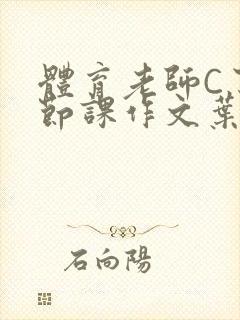 體育老師C了
節課作文葉
石向陽